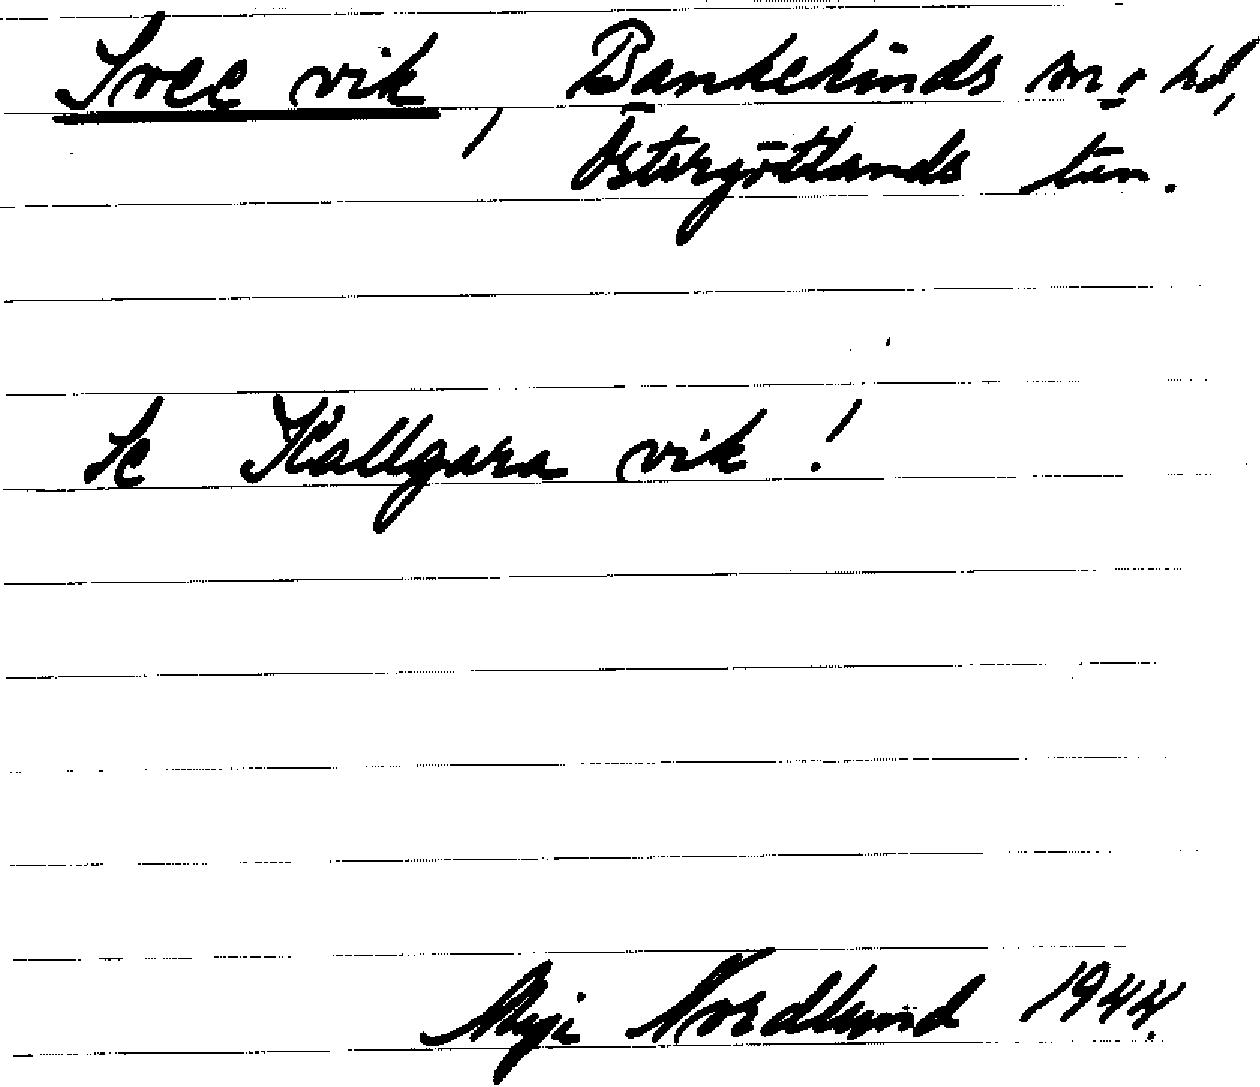 Svee vik, Bankekinds sn o hd,
Östergötlands län.
Se Kallgara vik!
Nordlund 1944.